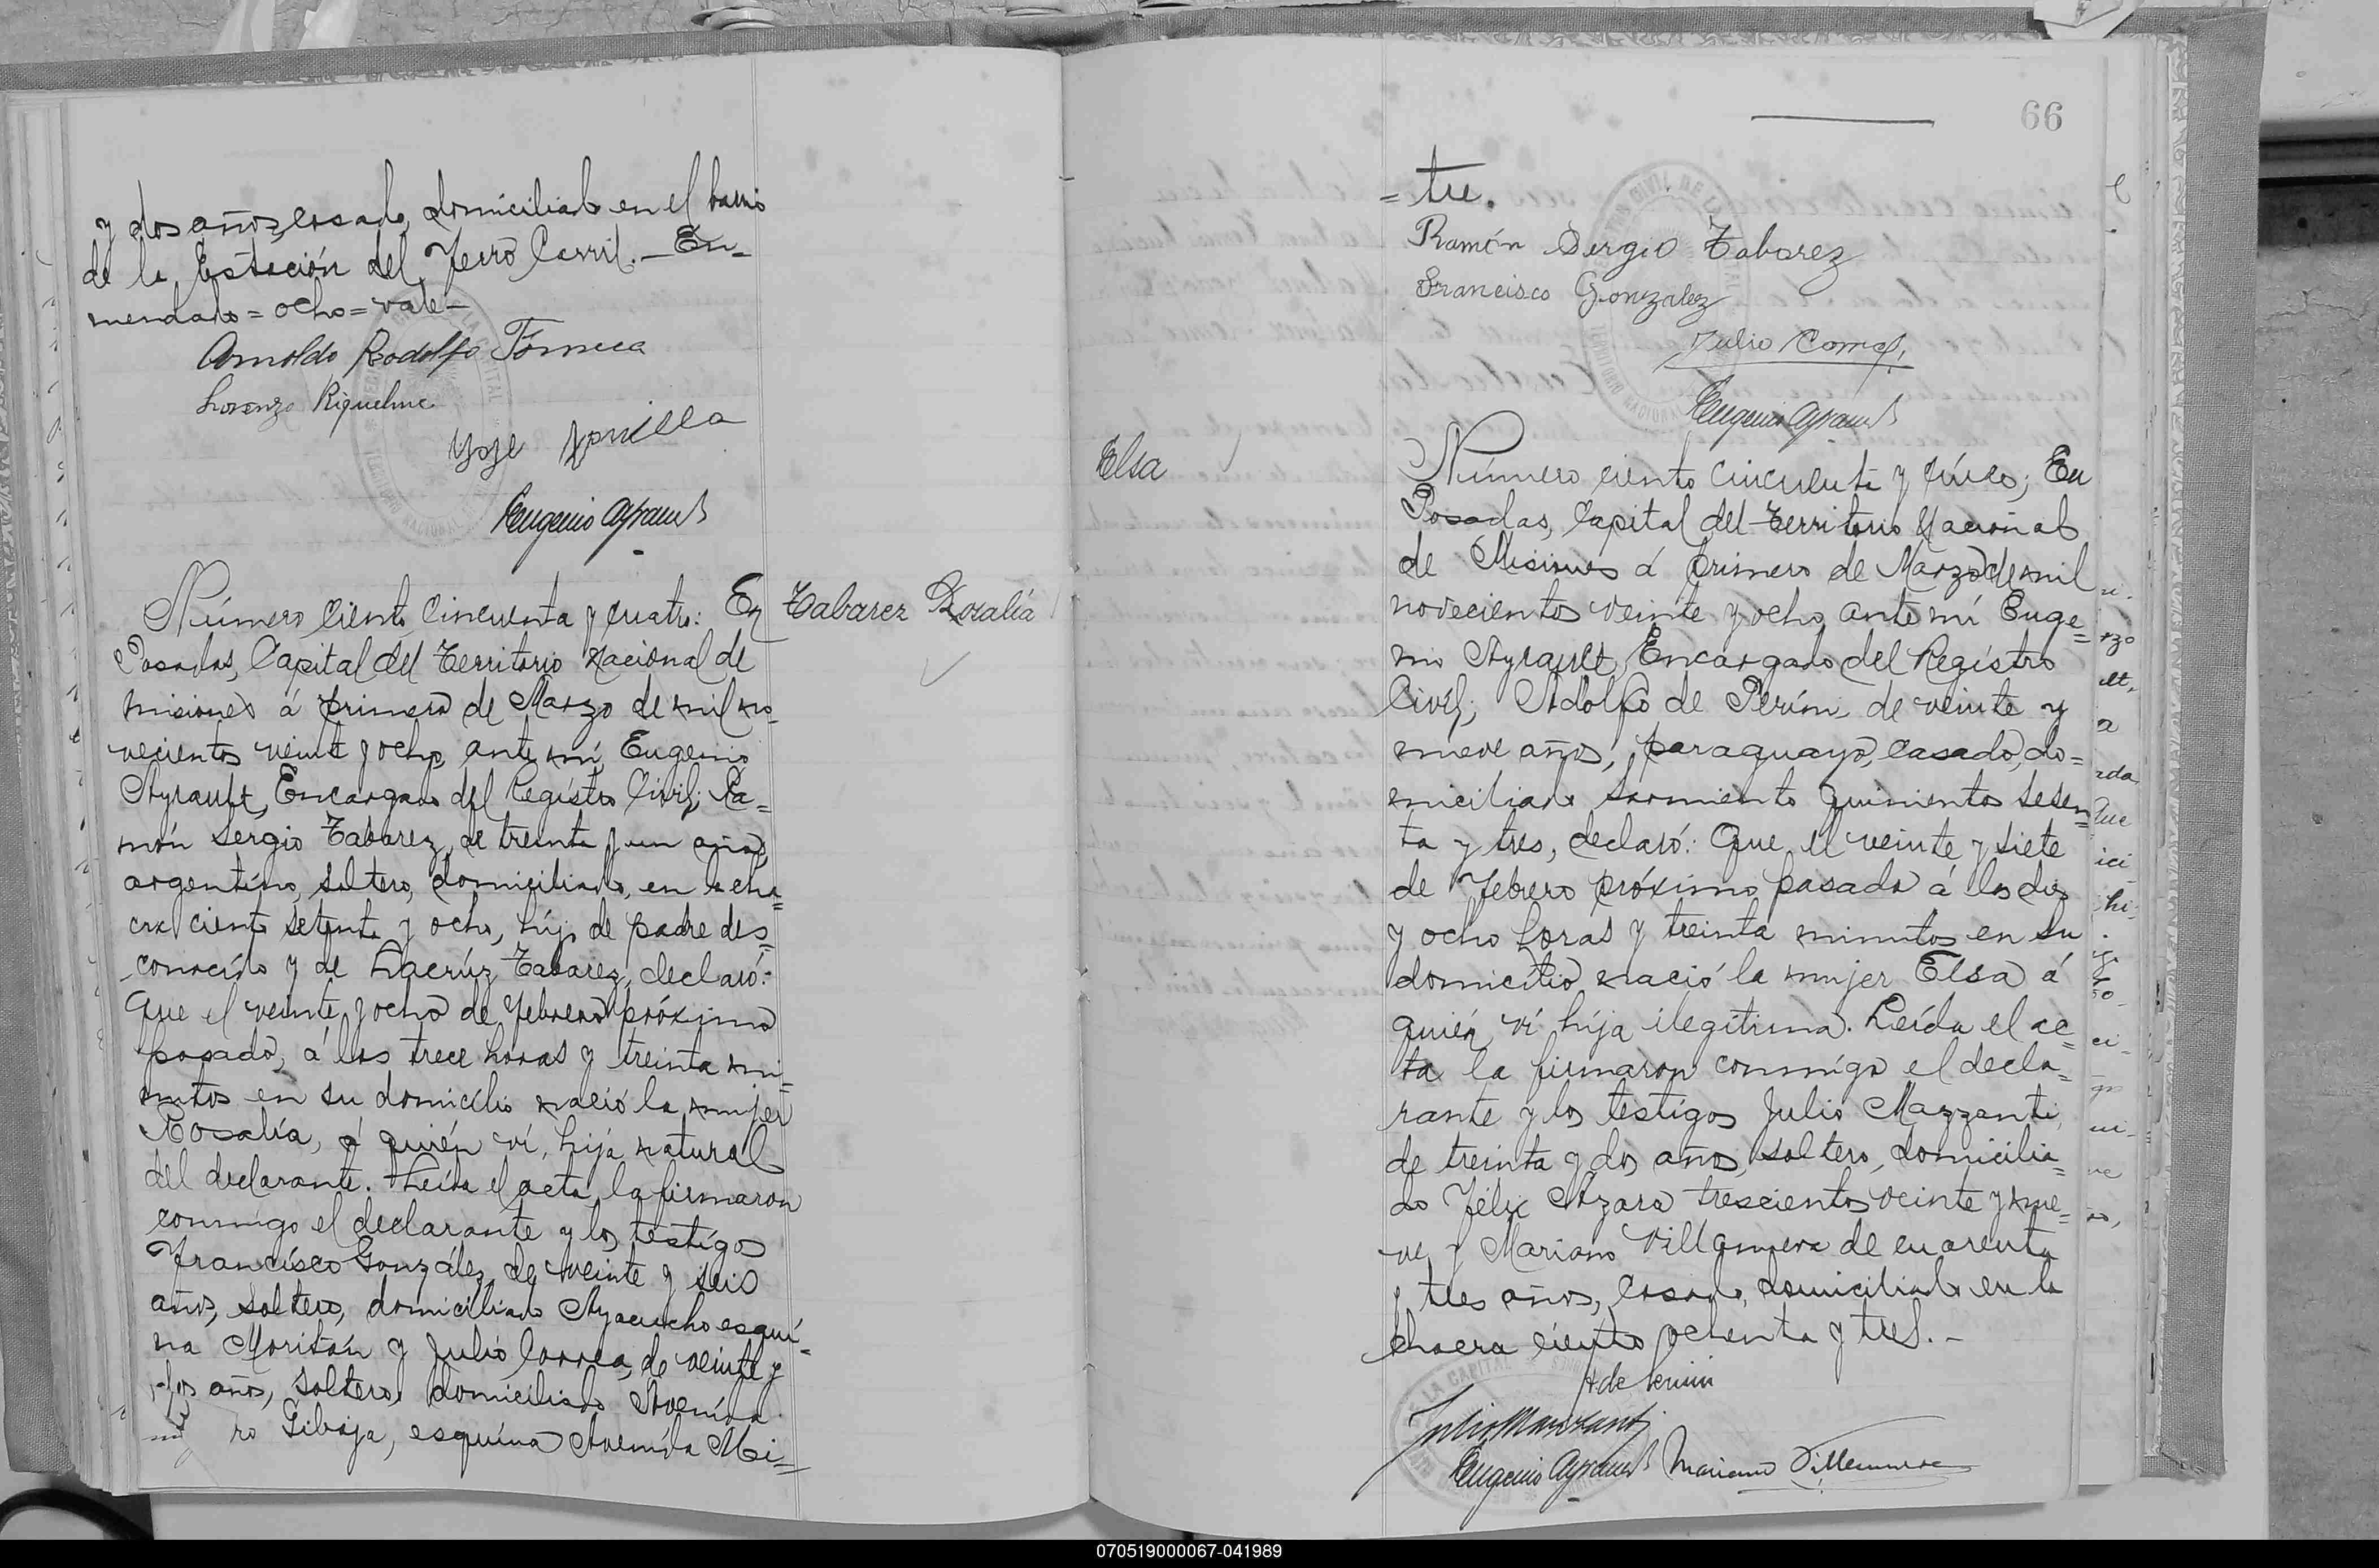 y dos años, casado, domiciliado en el barrio
de la Estación del Ferro Carril. — En-
mendado = ocho = vale —
Arnoldo Rodolfo Fonseca
Lorenzo Riquelme
Eugenio Ayrault
Número ciento cincuenta y cuatro: En
Posadas, Capital del Territorio Nacional de
Misiones á primero de Marzo de mil no-
vecientos veinte y ocho, ante mí, Eugenio
Ayrault, Encargado del Registro Civil; Ra=
món Sergio Tabarez, de treinta y un años,
argentino, soltero, domiciliado, en la cha=
cra ciento setenta y ocho, hijo de padre des=
conocido y de Lacrúz Tabarez, declaró:
Que el veinte y ocho de Febrero próximo
pasado, á las trece horas y treinta mi=
nutos en su domicilio nació la mujer
Rosalía, á quién ví, hija natural
del declarante. Leída el acta, la firmaron
conmigo el declarante y los testigos
Francisco González, de veinte y seis
años, soltero, domiciliado Ayacucho esquí-
na Moritán y Julio Correa, de veinte y
dos años, soltero, domiciliado Avenida
ro Gibaja, esquina Avenida Mi=
Tabarez Rosalía
66
= tre.
Ramón Sergio Tabarez
Francisco Gonzalez
Julio Correa
Eugenio Ayrault
Elsa
Número ciento cincuenta y cinco; En
Posadas, Capital del Territorio Nacional
de Misiones á primero de Marzo de mil
novecientos veinte y ocho ante mí Euge=
nio Ayrault, Encargado del Registro
Civil; Adolfo de Perini, de veinte y
nueve años, paraguayo, casado, do=
miciliado Sarmiento quinientos sesen=
ta y tres, declaró: Que el veinte y siete
de Febrero próximo pasado á las diez
y ocho horas y treinta minutos en su
domicilio nació la mujer Elsa á
quién ví hija ilegítima. Leída el ac=
ta la firmaron conmigo el decla=
rante y los testigos Julio Mazzanti,
de treinta y dos años, soltero, domicilia=
do Félix Azara trescientos veinte y nue=
ve y Mariano Villanueva de cuarenta
y tres años, casado, domiciliado en la
chacra ciento ochenta y tres. —
A de Perini
Julio Mazzanti
Eugenio Ayrault Mariano Villanueva
070519000067-041989